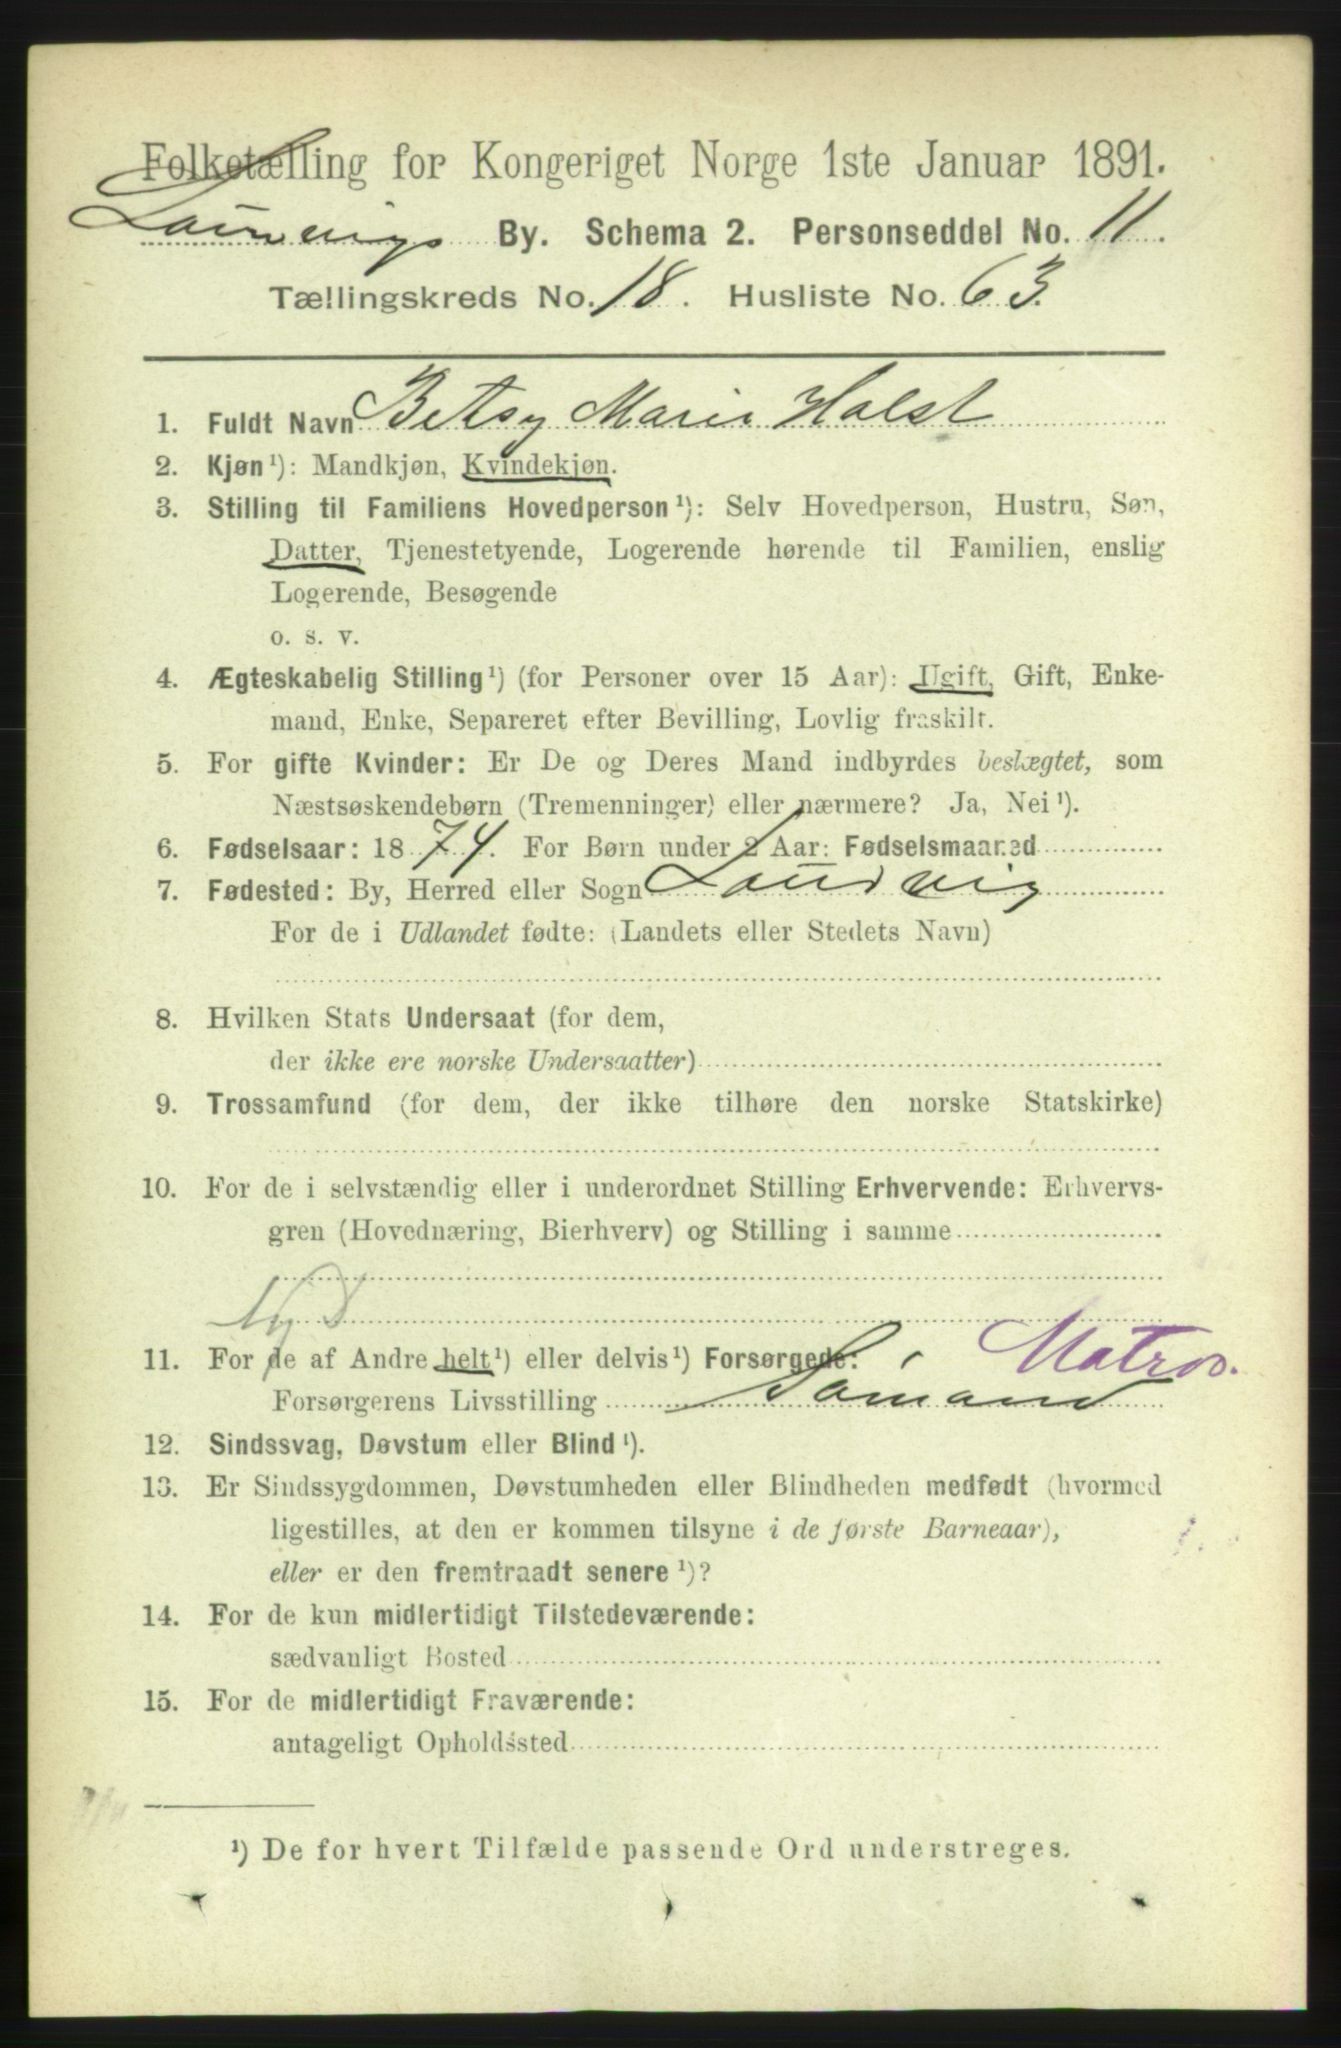 Folketælling for Kongeriget Norge 1ste Januar 1891.
Laurvigs By. Schema 2. Personseddel No. 11.
Tællingskreds No. 18. Husliste No. 63.
1. Fuldt Navn Betsy Marie Holst
2. Kjøn¹): Mandkjøn, Kvindekjøn.
3. Stilling til Familiens Hovedperson¹): Selv Hovedperson, Hustru, Søn,
Datter, Tjenestetyende, Logerende hørende til Familien, enslig
Logerende, Besøgende
o. s. v.
4. Ægteskabelig Stilling¹) (for Personer over 15 Aar): Ugift, Gift, Enke-
mand, Enke, Separeret efter Bevilling, Lovlig fraskilt.
5. For gifte Kvinder: Er De og Deres Mand indbyrdes beslægtet, som
Næstsøskendebørn (Tremenninger) eller nærmere? Ja, Nei¹).
6. Fødselsaar: 1874. For Børn under 2 Aar: Fødselsmaaned
7. Fødested: By, Herred eller Sogn Laurvig
For de i Udlandet fødte: (Landets eller Stedets Navn)
8. Hvilken Stats Undersaat (for dem,
der ikke ere norske Undersaatter)
9. Trossamfund (for dem, der ikke tilhøre den norske Statskirke)
10. For de i selvstændig eller i underordnet Stilling Erhvervende: Erhvervs-
gren (Hovednæring, Bierhverv) og Stilling i samme
11. For de af Andre helt¹) eller delvis¹) Forsørgede: Matros.
Forsørgerens Livsstilling Sømand
12. Sindssvag, Døvstum eller Blind¹).
13. Er Sindssygdommen, Døvstumheden eller Blindheden medfødt (hvormed
ligestilles, at den er kommen tilsyne i de første Barneaar),
eller er den fremtraadt senere¹)?
14. For de kun midlertidigt Tilstedeværende:
sædvanligt Bosted
15. For de midlertidigt Fraværende:
antageligt Opholdssted
¹) De for hvert Tilfælde passende Ord understreges.